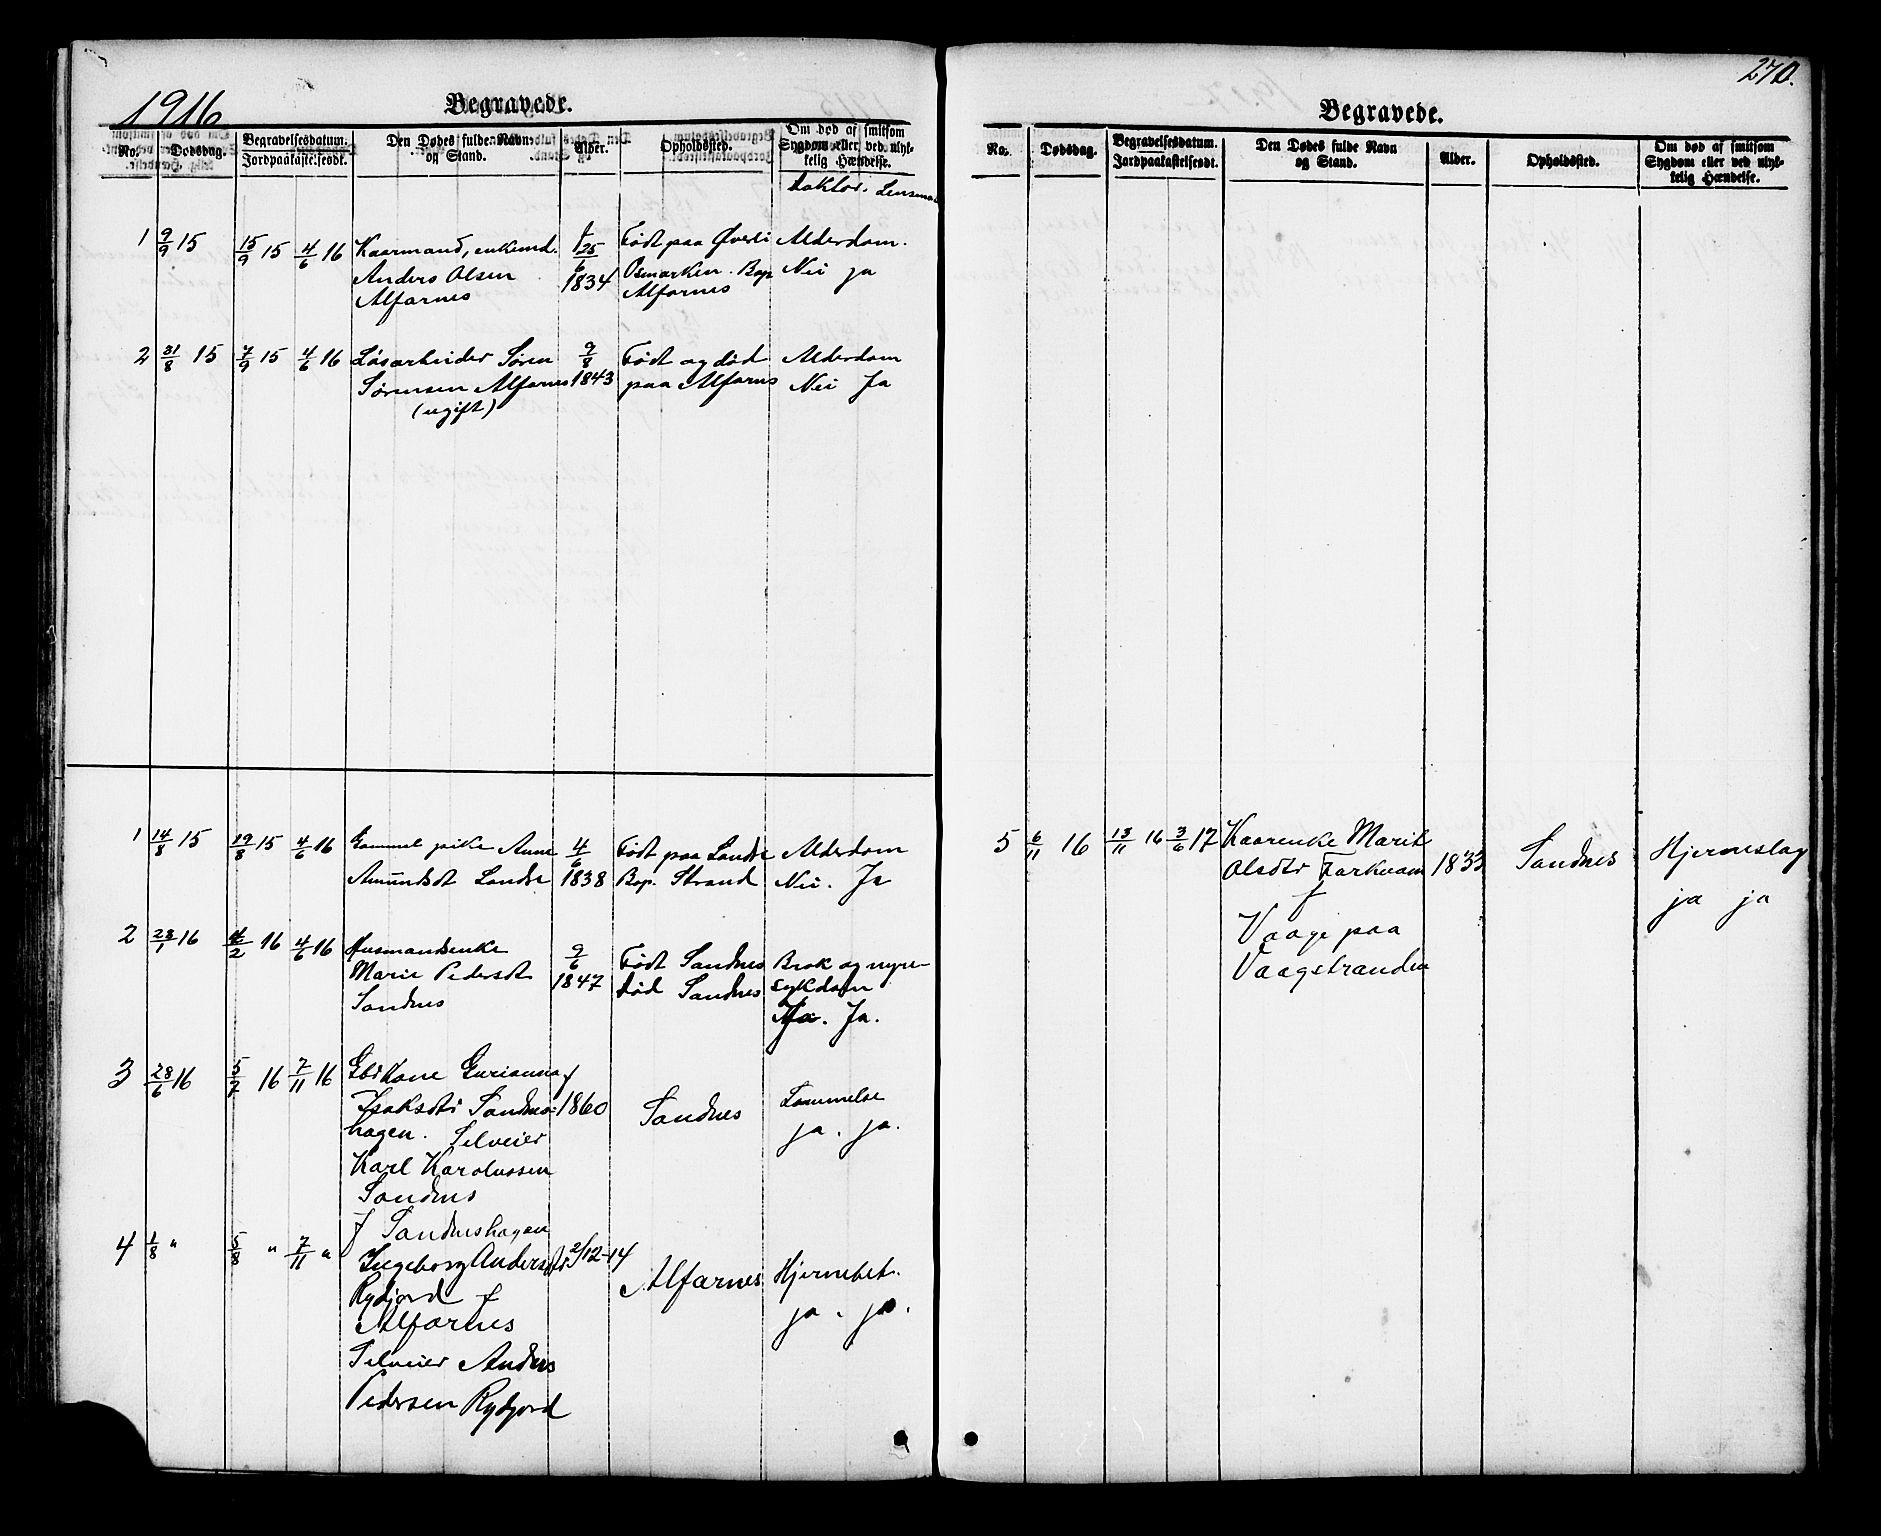 1916
Begravede.
No.
Dødsdag.
Begravelsesdatum.
Jordpaakastelsesdt.
Den Dødes fulde Navn
og Stand.
Alder.
Opholdssted.
Om død af smitsom
Sygdom eller ved ulyk-
kelig Hændelse.
Doktor. Lensmand
1 9/9 15 15/9 15 4/6 16
Kaarmand, enkemd.
Anders Olsen
Alfarnes
f
25/6
1834
Født paa Øverli
Osmarken. Bop
Alfarnes
Alderdom.
Nei ja
2 31/8 15 7/9 15 4/6 16
Løsarbeider Søren
Sørensen Alfarnes
(ugift)
9/8
1843
Født og død
paa Alfarnes
Alderdom
Nei Ja
1 14/8 15 19/8 15 4/6 16
Gammel pike Anne
Amundsdt Landre
4/6
1838
Født paa Landre
Bop. Strand
Alderdom
Nei. Ja
2 23/1 16 4/2 16 4/6 16
Husmandsenke
Marie Pedersdt
Sandnes
9/6
1847
Født Sandnes
Død Sandnes
Brok og nyre-
sykdom
Ja. Ja.
3 28/6 16 5/7 16 7/11 16
Gbr Kone Gurianna f
Isaksdtr Sandnes-
hagen. Selveier
Karl Karolussen
Sandnes
f Sandneshagen
1860
Sandnes
Lammelse
ja. ja.
4 1/8 " 5/8 " 7/11 "
Ingeborg Andersdtr
Rydjord f
Alfarnes
Selveier Anders
Pedersen Rydjord
2/12-14
Alfarnes
Hjernebet.
ja. ja.
270.
Begravede.
No.
Dødsdag.
Begravelsesdatum.
Jordpaakastelsesdt.
Den Dødes fulde Navn
og Stand.
Alder.
Opholdssted.
Om død af smitsom
Sygdom eller ved ulyk-
kelig Hændelse.
5 6/11 16 13/11 16 3/6 17
Kaarenke Marit
Olsdtr Farkvam
f
Vaage paa
Vaagstranden
1833
Sandnes
Hjerneslag
ja ja